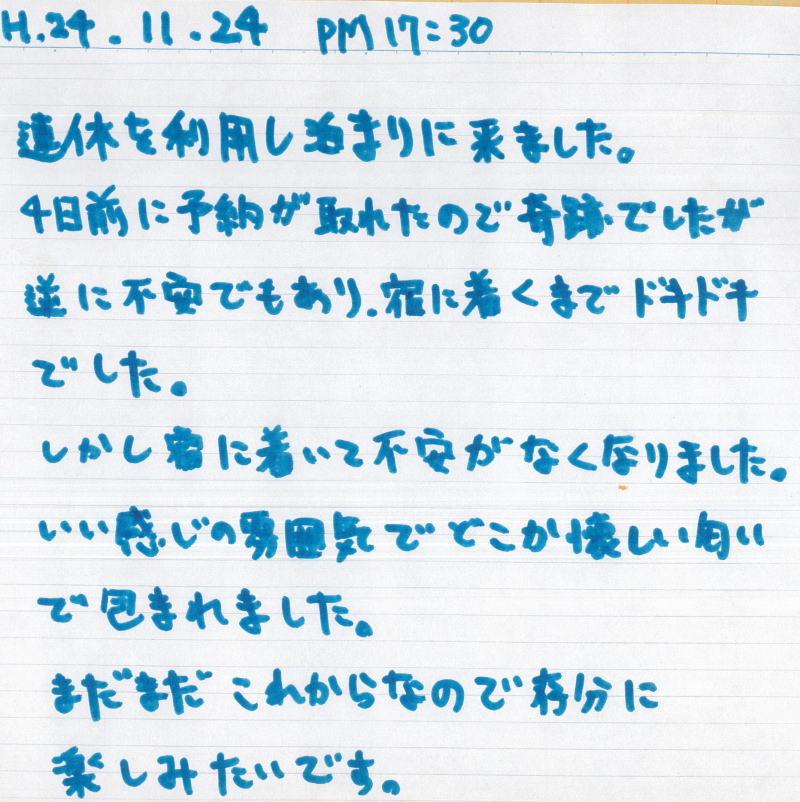 H.24.11.24 PM 17:30
連休を利用し泊まりに来ました。
4日前に予納が取れたので奇跡でしたが
逆に不安でもあり、宿に着くまでドキドキ
でした。
しかし宿に着いて不安がなくなりました。
いい感じの雰囲気でどこか懐しい匂い
で包まれました。
まだまだこれからなので存分に
楽しみたいです。